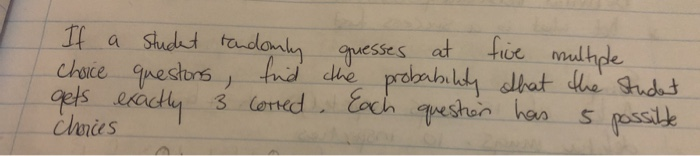 If a student randomly guesses at five multiple
choice questions, find the probability that the student
gets exactly 3 correct. Each question has 5 possible
choices